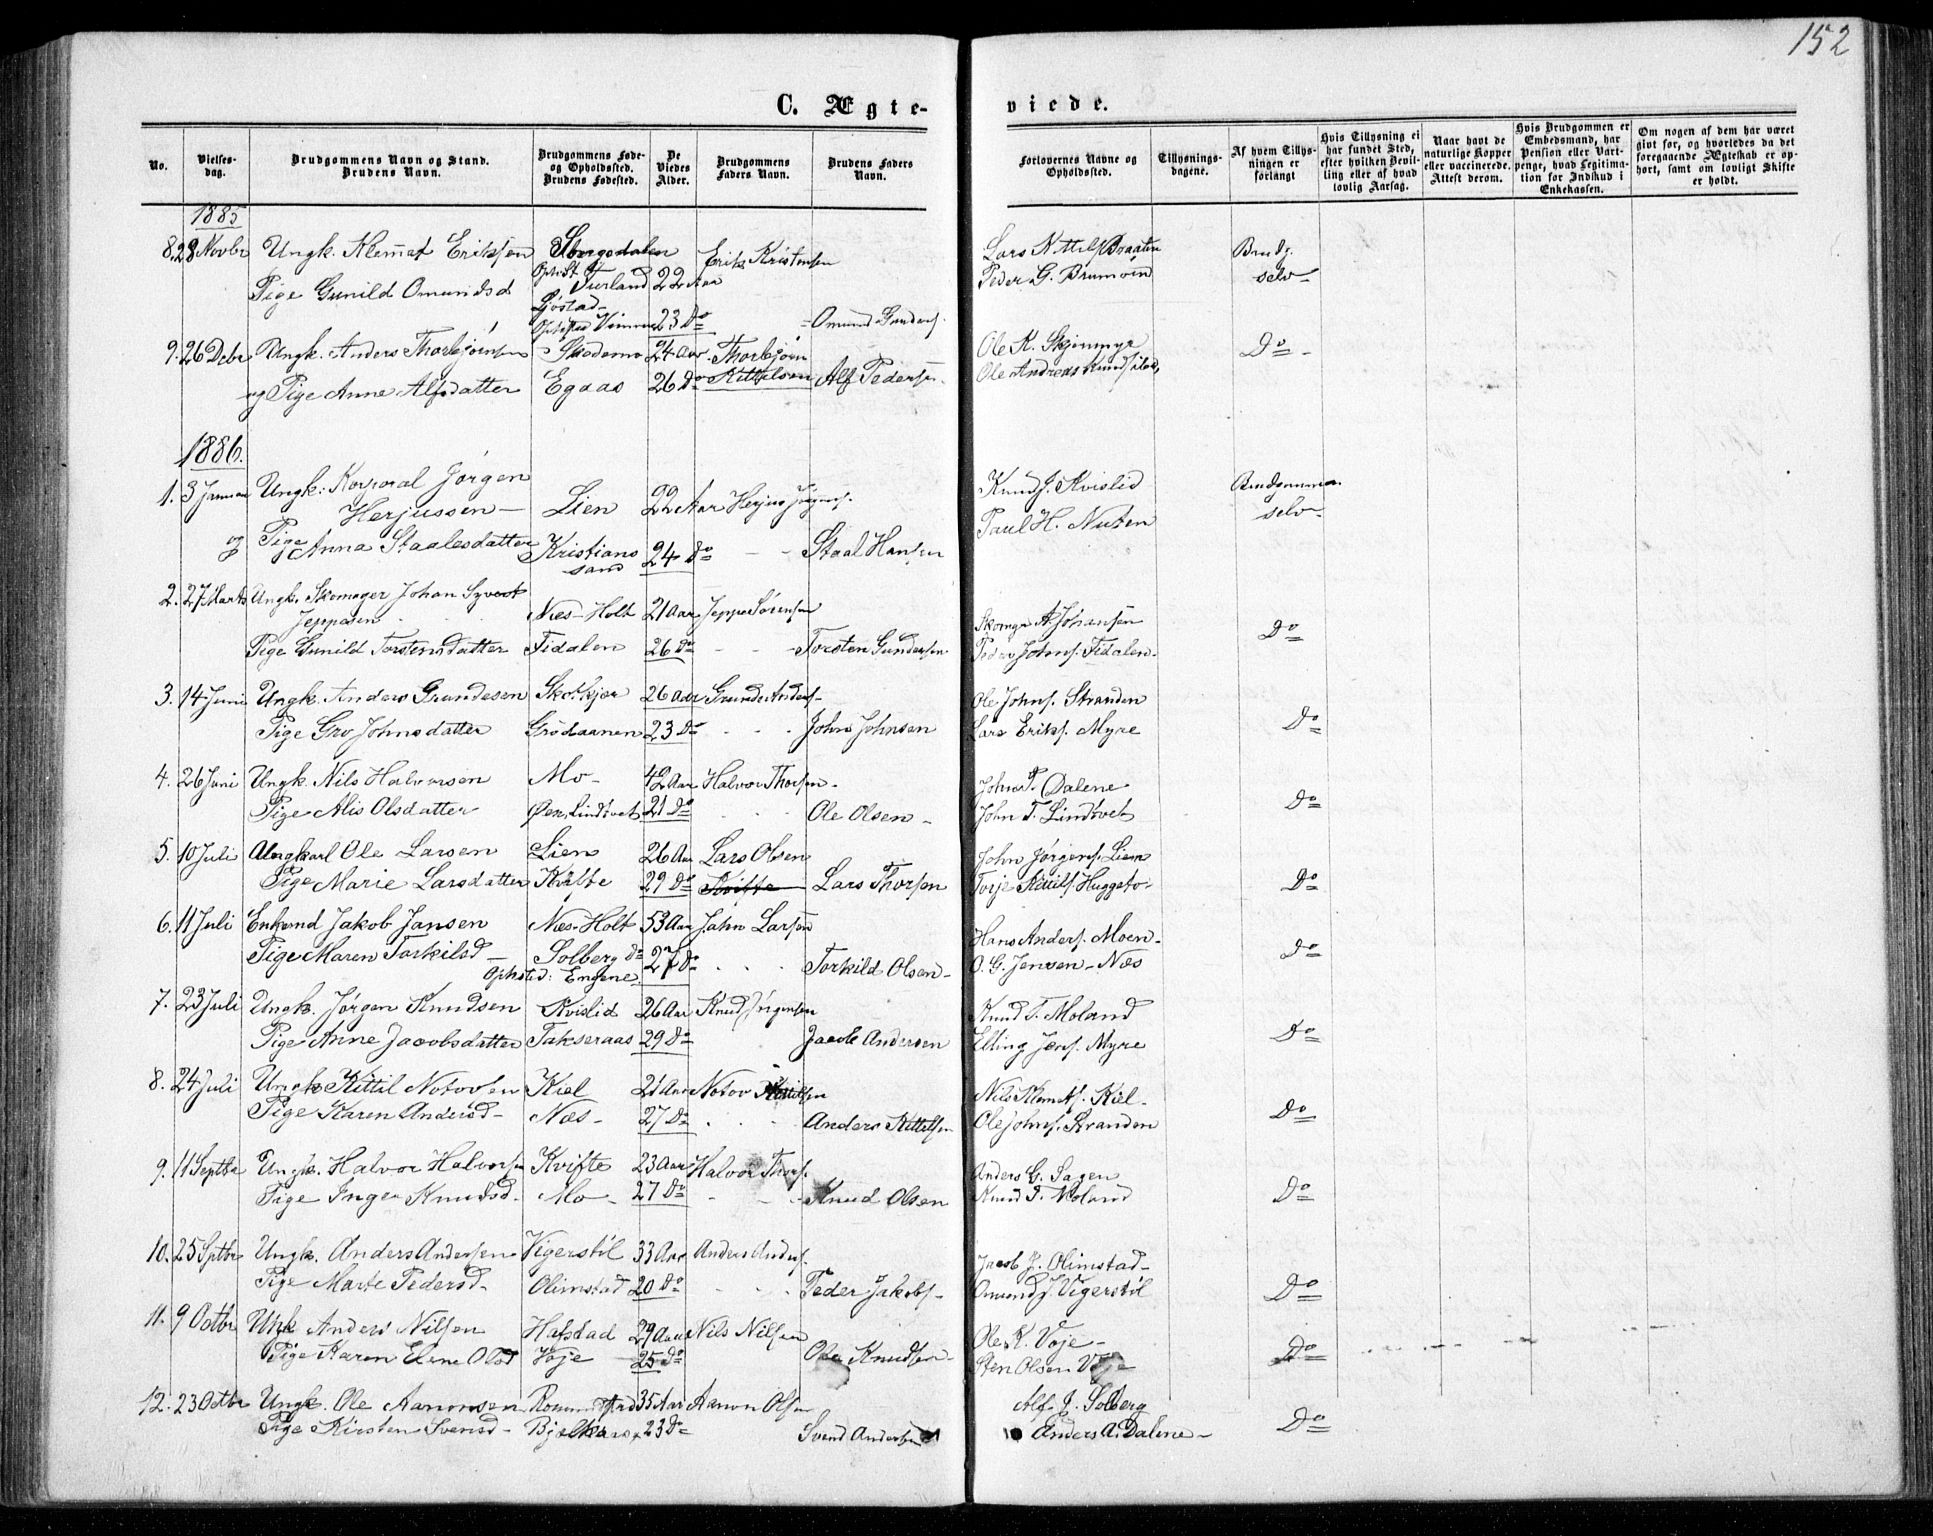 152
C. Ægte-
viede.
No.
Vielses-
dag.
Brudgommens Navn og Stand.
Brudens Navn.
Brudgommens Føde-
og Opholdssted.
Brudens Fødested.
De
Viedes
Alder.
Brudgommens
Faders Navn.
Brudens Faders
Navn.
Forlovernes Navne og
Opholdssted.
Tillysnings-
dagene.
Af hvem Tillys-
ningen er
forlangt
Hvis Tillysning ei
har fundet Sted,
efter hvilken Bevil-
ling eller af hvad
lovlig Aarsag.
Naar havt de
naturlige Kopper
eller vaccinerede.
Attest derom.
Hvis Brudgommen er
Embedsmand, har
Pension eller Vart-
penge, hvad Legitima-
tion for Indskud i
Enkekassen.
Om nogen af dem har været
givt før, og hvorledes da det
foregaaende Ægteskab er op-
hørt, samt om lovligt Skifte
er holdt.
1885
8. 28 Novbr Ungk. Klemmet Eriksen Songedalen Erik Kristensen Lars Nittelsbraaten Brudg.
Ophst Furland 22 Aar Peder G. Brumoen selv
Pige Gunild Omundsd Ljøstad
Ophsted 23 Do Omund Gunders.
9. 26 Debr Ungk. Anders Thorbjørnsen Skademo 24 Aar Thorbjørn Ole K. Skjenmyr Do
og Pige Anne Alfsdatter Egaas 26 Do Kittelsen Alf Pedersen Ole Andreas
1886.
1. 3 Januar Ungk: Korporal Jørgen Knud J. Kvislid Brudgommen
Herjussen Lien 22 Aar Herjus Jørgens. Paul H. Nuten selv
og Pige Anna Staalesdatter Kristians 24 Do Staal Hansen
sand
2. 27 Marts Ungk. Skomager Johan Syvert
Jeppesen Næs-Holt 21 Aar Jeppe Sørensen Skomgr A Johansen Do
Pige Gunild Torstensdatter Fidalen 26 Do Torsten Gundersen Peder Johns. Fidalen
3. 14 Juni Ungk. Anders Grundesen Skotkjær 26 Aar Grunde Anders. Ole Johns. Stranden
Pige Gro Johnsdatter Grødaanen 23 Do John Johnsen Lars Eriks. Myre Do
4. 26 Juni Ungk. Nils Halvorsen Mo 42 Aar Halvor Thorsen John T. Dalene
Pige Alis Olsdatter Øen, Lindtvet 21 Do Ole Olsen John T. Lindtvet Do
5. 10 Juli Ungkarl Ole Larsen Lien 26 Aar Lars Olsen John Jørgens. Lien
Pige Marie Larsdatter Kvifte 29 Do Kvifte Lars Thorsen Torje Kittils. Huggeto Do
6. 11 Juli Enkemd Jakob Jansen Næs-Holt 53 Aar Jahn Larsen Hans Anders. Moen
Pige Maren Torkilsd Solberg Do 27 Do Torkild Olsen O. G. Jensen Næs Do
Ophsted: Engene
7. 23 Juli Ungk. Jørgen Knudsen Kvislid 26 Aar Knud Jørgensen Knud T. Moland
Pige Anne Jacobsdatter Takseraas 29 Do Jacob Andersen Elling Jens. Myre Do
8. 24 Juli Ungk Kittil Notovsen Kiel 21 Aar Notov Kittilsen Nils Klemets. Kiel
Pige Karen Andersd Næs 27 Do Anders Kittelsen Ole Johns. Stranden Do
9. 11 Septbr Ungk. Halvor Halvorsen Kvifte 23 Aar Halvor Thors. Anders G. Sagen
Pige Inger Knudsd. Mo 27 Do Knud Olsen Knud T. Moland Do
10. 25 Sptbr Ungk. Anders Andersen Vigerstøl 33 Aar Anders Anders. Jacob J. Olimstad
Pige Marte Pedersd Olimstad 20 Do Peder Jakobs. Omund J. Vigerstøl Do
11. 9 Octbr Unk Anders Nilsen Hafstad 29 Aar Nils Nilsen Ole K. Voje
Pige Karen Elene Olsd Voje 25 Do Ole Knudsen Sten Olsen Voje Do
12. 23 Octbr Ungk. Ole Aanonsen 35 Aar Aanon Olsen Alf J. Solberg
Pige Kirsten Svensd 23 Do Svend Andersen Anders A. Dalene Do